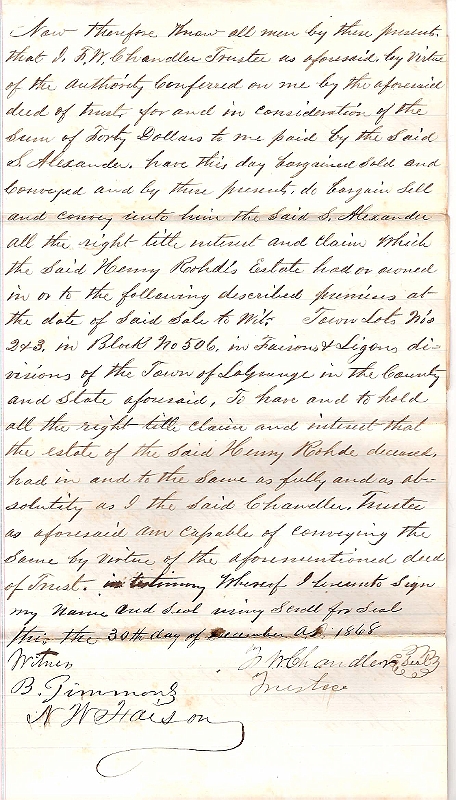 Now therefore Know all men by these present.
that I. F. W. Chandler Trustee as aforesaid, by Virtue
of the authority Conferred on me by the aforesaid
deed of trust, for and in consideration of the
Sum of Forty Dollars to me paid by the Said
S. Alexander. have this day bargained sold and
Conveyed and by these present, do bargain Sell
and convey unto him the said S. Alexander
all the right title interest and claim Which
the said Henry Rohde's Estate had or owned
in or to the following described premises at
the date of Said Sale to Wit. Town Lots No's
2&3. in Block No 506. in Faisons & Ligons di-
visions of the Town of LaGrange in the County
and State aforesaid, To have and to hold
all the right title claim and interest that
the estate of the Said Henry Rohde deceased,
had in and to the Same as fully and as ab-
solutely as I the Said Chandler, Trustee
as aforesaid am capable of conveying the
Same by Virtue of the aforementioned deed
of Trust. in testimony Whereof I hereunto Sign
my Name and Seal using Scroll for Seal
this the 30th day of December AD. 1868
Witness F. W. Chandler Seal
B. Timmons Trustee
N W Faison